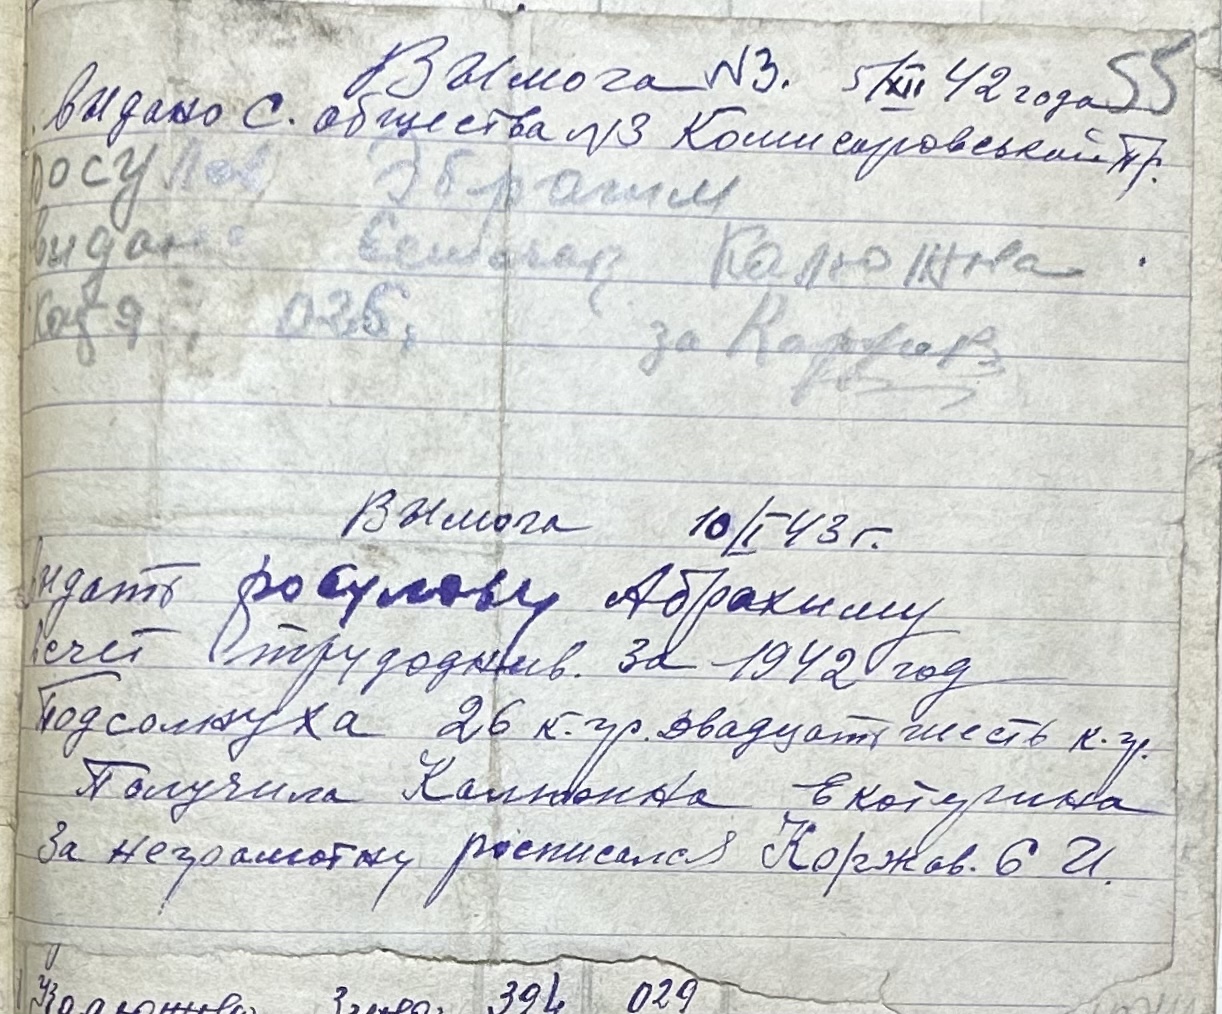 Вымога N3. 5/XII 42 года 55
Выдано с. общества N3 Комисаровський пр.
росулов Эбрагим
выдано Калюжна
Катя, 026, за
Вымога 10/I 43 г.
Выдать росулову Абрахиму
всчет трудоднив. За 1942 год
Подсолнуха 26 к.гр. двадцать шесть к.гр.
Получила Калюжна Екотерина
За неграмотну росписался Коржов. Б И.
394 029